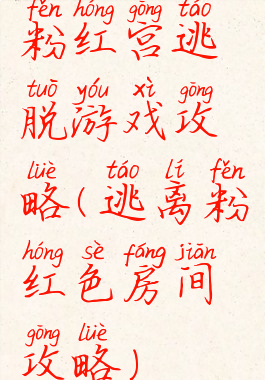 fěn hóng gōng táo
粉红宫逃
tuō yóu xì gōng
脱游戏攻
lüè táo lí fěn
略(逃离粉
hóng sè fáng jiān
红色房间
gōng lüè
攻略)